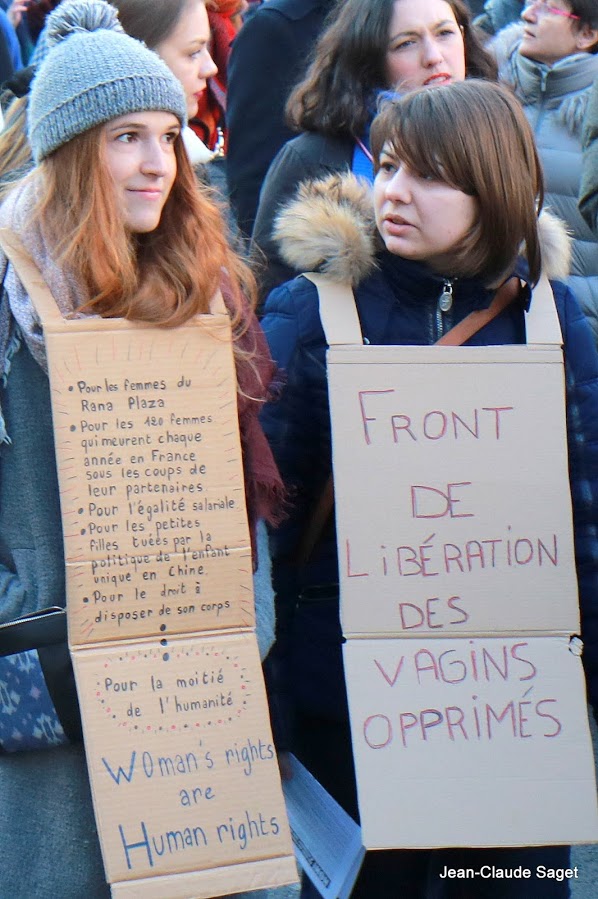 • Pour les femmes du
Rana Plaza
• Pour les 120 femmes
qui meurent chaque
année en France
sous les coups de
leur partenaires
• Pour l'égalité salariale
• Pour les petites
filles tuées par la
politique de l'enfant
unique en Chine.
• Pour le droit à
disposer de son corps
Pour la moitié
de l'humanité
Woman's rights
are
Human rights
FRONT
DE
LIBÉRATION
DES
VAGINS
OPPRIMÉS
Jean-Claude Saget